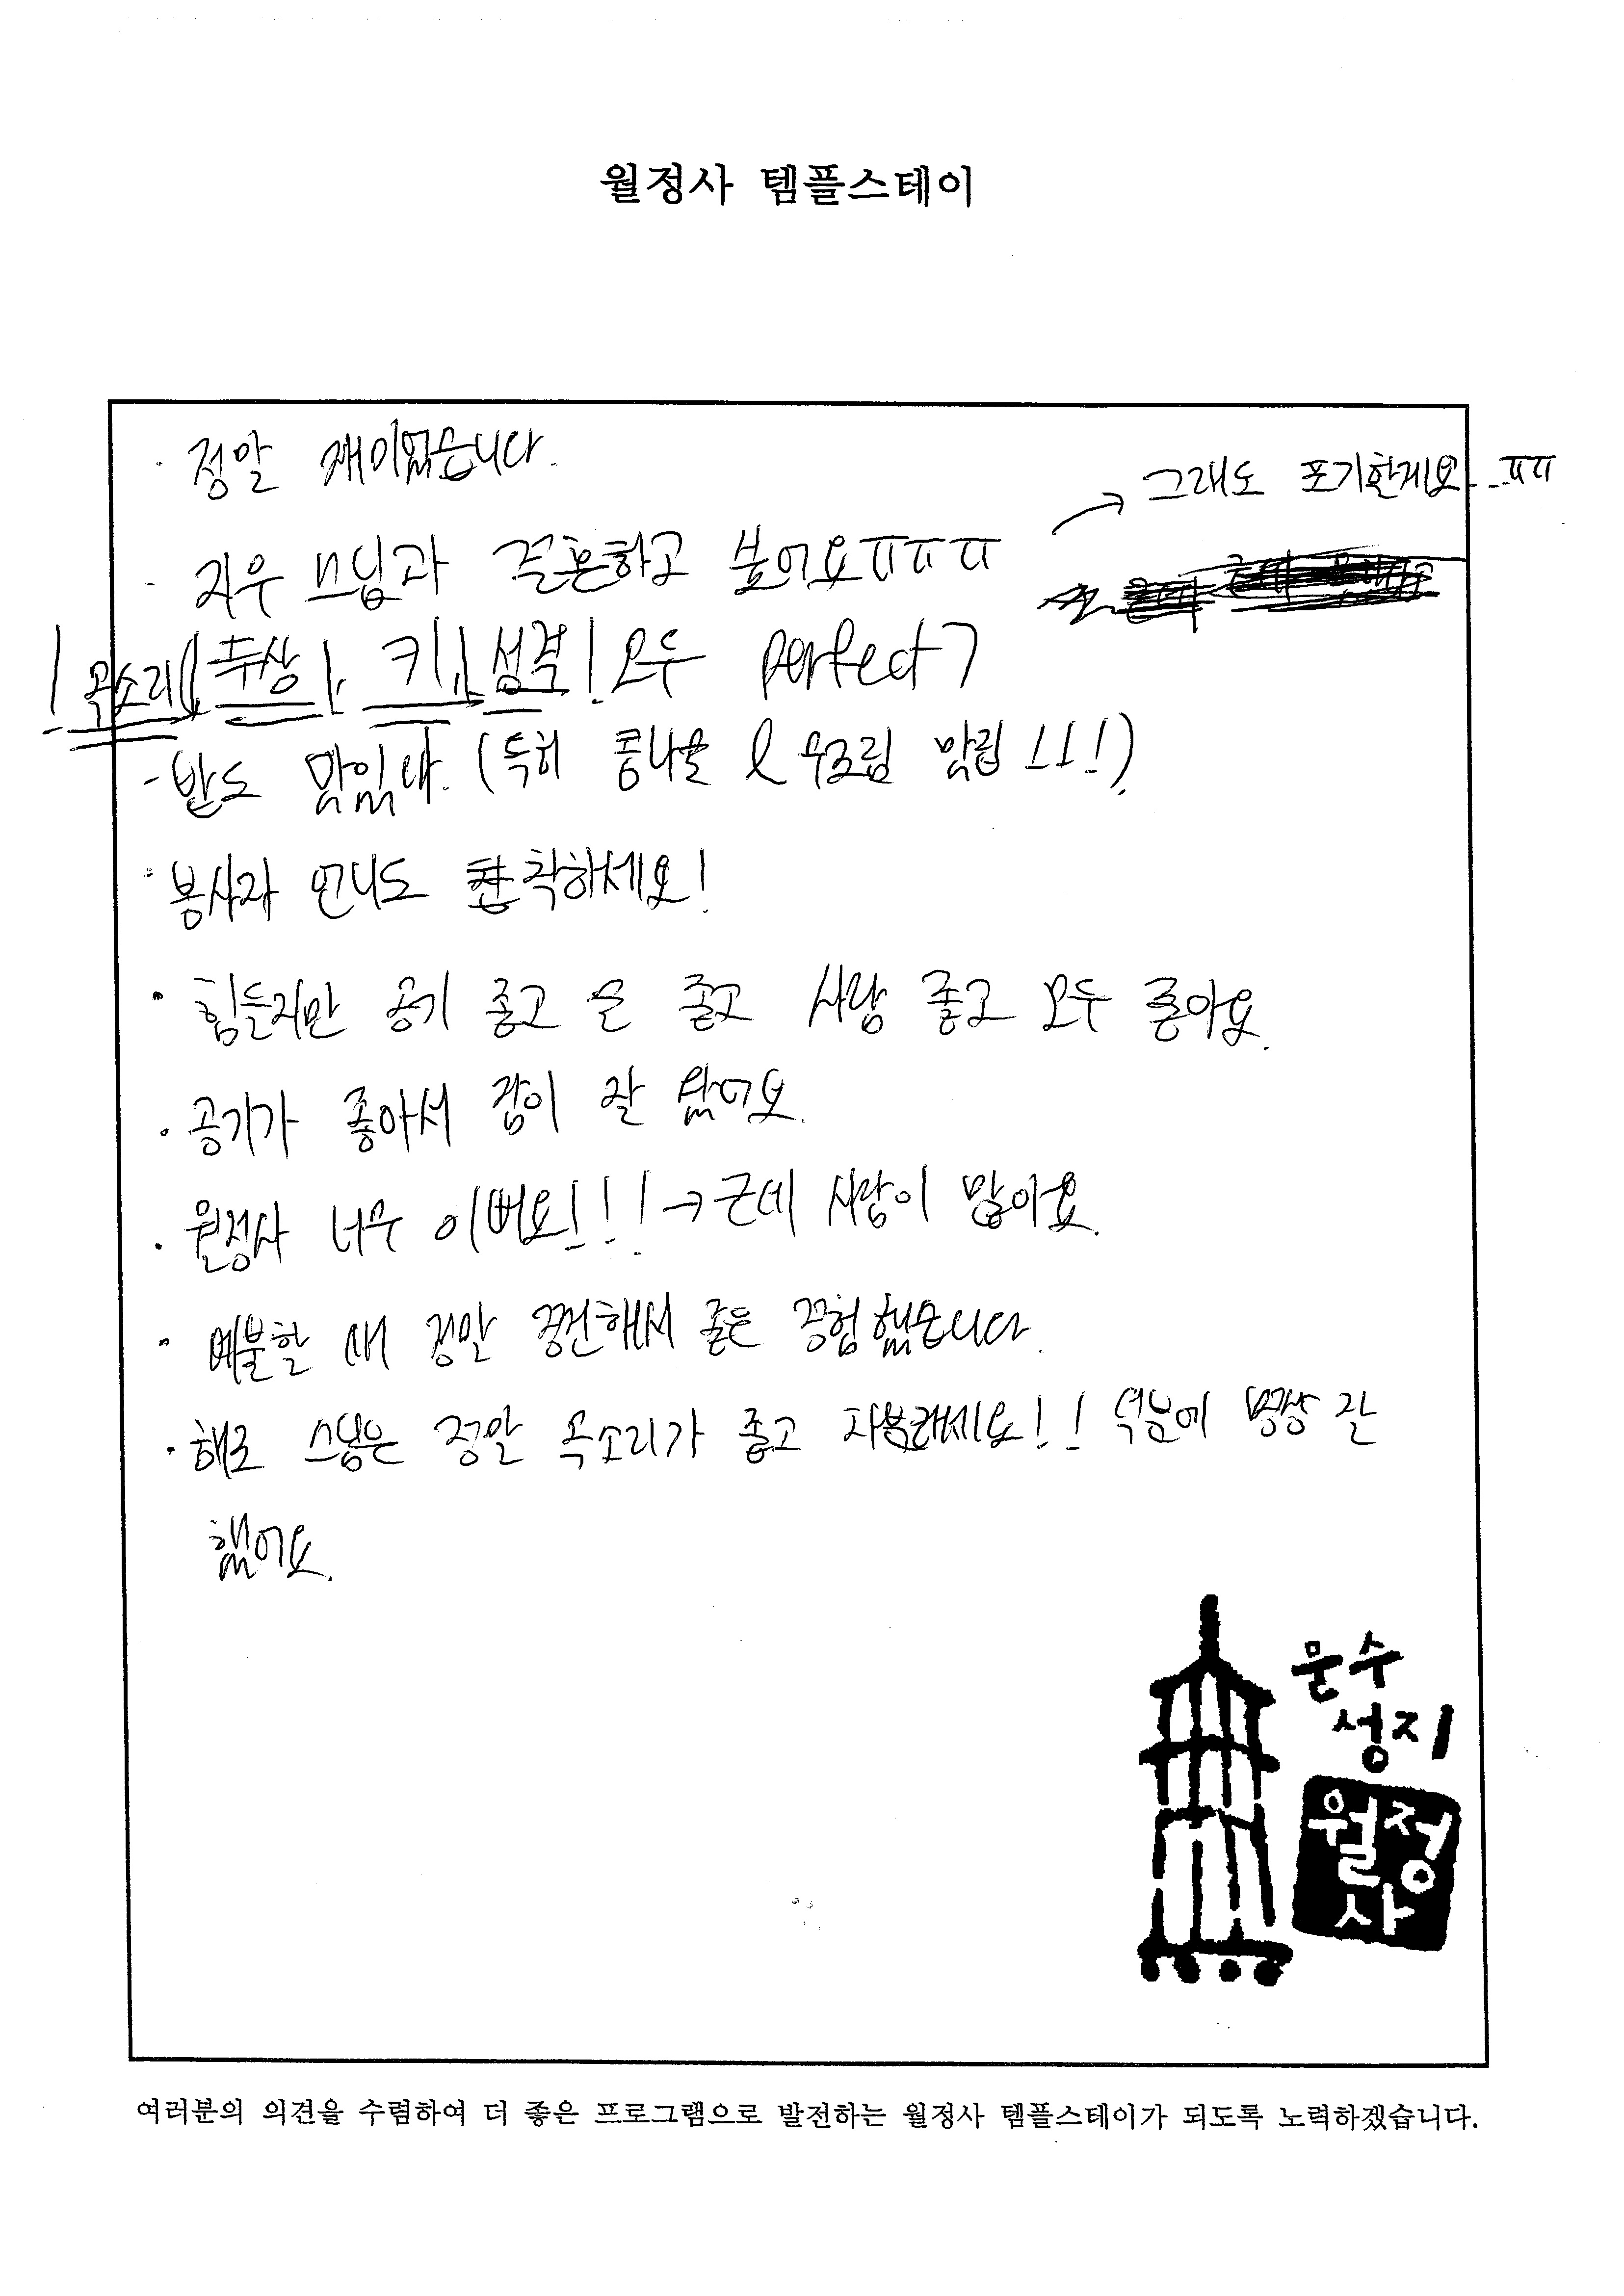 월정사 템플스테이
· 정말 재미있었습니다.
→ 그래도 포기할게요...ㅠㅠ
· 지우 스님과 결혼하고 싶어요ㅠㅠㅠ
! 목소리! 두상! 키! 성격! 모두 perfect
- 밥도 맛있다. (특히 콩나물 & 우조림 맛집!!!)
· 봉사자 언니도 착하세요!
· 힘들지만 공기 좋고 물 좋고 사람 좋고 모두 좋아요.
· 공기가 좋아서 잠이 잘 왔어요.
· 월정사 너무 이뻐요!!! → 근데 사람이 많아요.
· 예불할 때 정말 경건해서 좋은 경험했습니다.
· 해로 스님은 정말 목소리가 좋고 차분하세요!! 덕분에 명상 잘
했어요.
문수
성지
월정
사
여러분의 의견을 수렴하여 더 좋은 프로그램으로 발전하는 월정사 템플스테이가 되도록 노력하겠습니다.